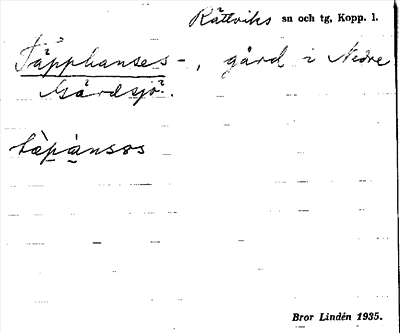 Rättviks sn och tg, Kopp. l.
Täpphanses-, gård i Nedre
Gärdsjö.
tæ̀pànsɷs
Bror Lindén 1935.